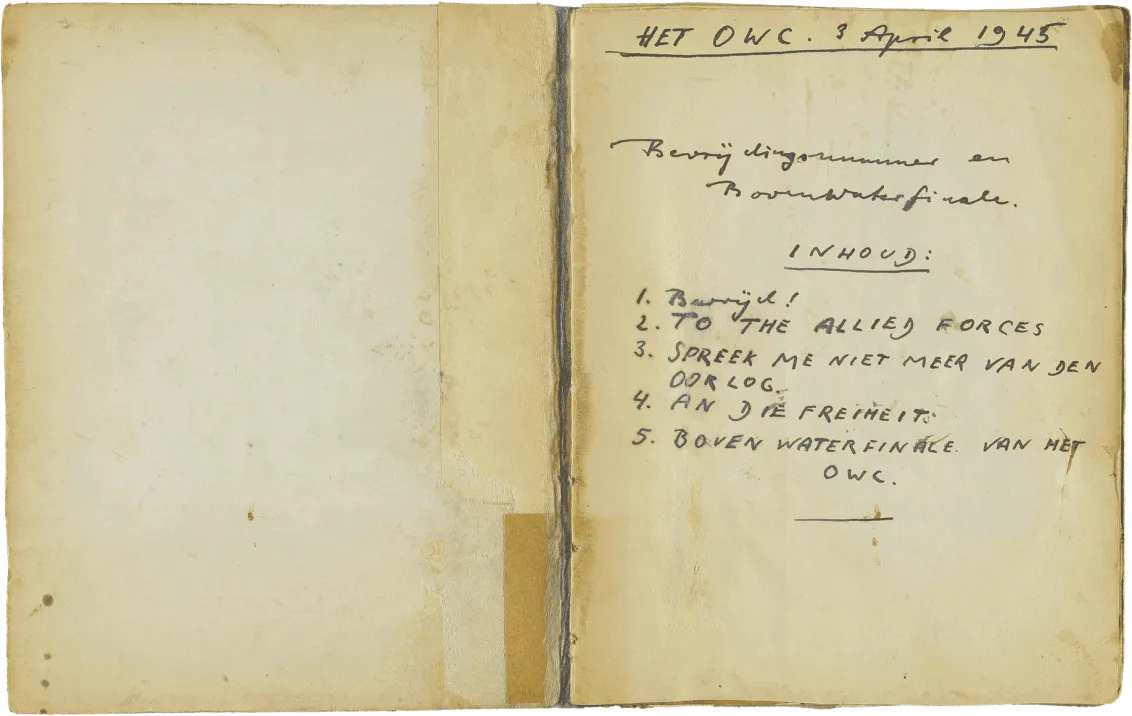 HET OWC. 3 April 1945
Bevrijdingsnummer en
Bovenwaterfinale.
INHOUD:
1. Bevrijd!
2. TO THE ALLIED FORCES
3. SPREEK ME NIET MEER VAN DEN
OORLOG.
4. AN DIE FREIHEIT.
5. BOVENWATERFINALE VAN HET
OWC.